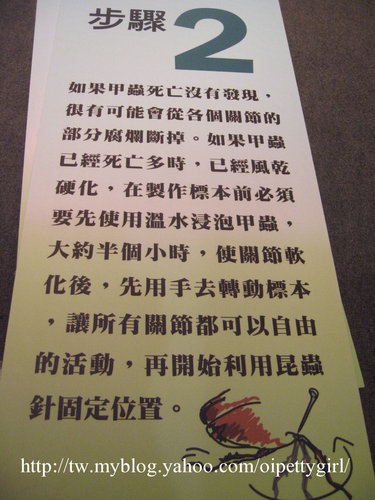 步驟
2
如果甲蟲死亡沒有發現，
很有可能會從各個關節的
部分腐爛斷掉。如果甲蟲
已經死亡多時，已經風乾
硬化，在製作標本前必須
要先使用溫水浸泡甲蟲，
大約半個小時，使關節軟
化後，先用手去轉動標本
，讓所有關節都可以自由
的活動，再開始利用昆蟲
針固定位置。
http://tw.myblog.yahoo.com/oipettygirl/